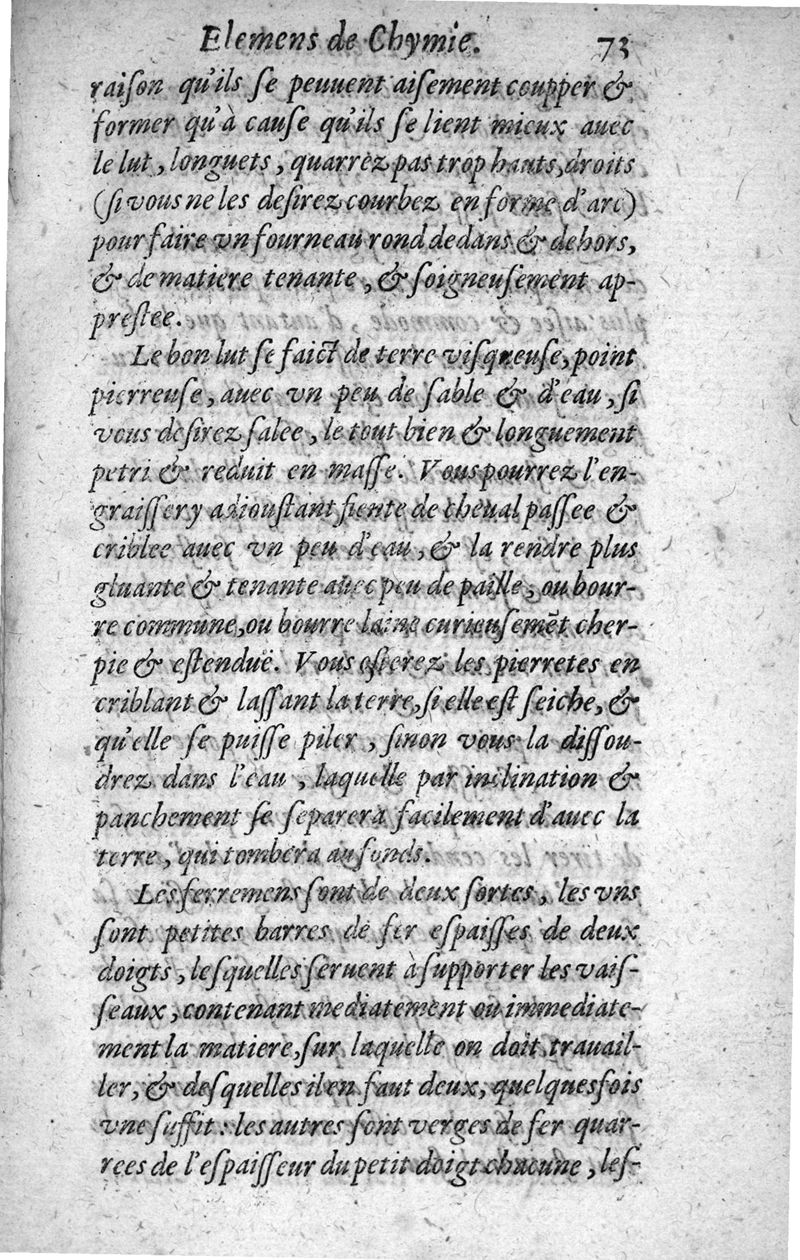 Elemens de Chymie. 73
raiſon qu'ils ſe peuuent aiſement coupper &
former qu'à cauſe qu'ils ſe lient mieux auec
le lut, longuets, quarrez pas trop hauts, droits
(ſi vous ne les deſirez courbez en forme d'arc)
pour faire vn fourneau rond dedans & dehors,
& de matiere tenante, & ſoigneuſement ap-
preſtee.
Le bon lut ſe faict de terre viſqueuſe, point
pierreuſe, auec vn peu de ſable & d'eau, ſi
vous deſirez ſalee, le tout bien & longuement
petri & reduit en maſſe. Vous pourrez l'en-
graiſſer y adiouſtant fiente de cheual paſſee &
criblee auec vn peu d'eau, & la rendre plus
gluante & tenante auec peu de paille, ou bour-
re commune, ou bourre laine curieuſemẽt cher-
pie & eſtenduë. Vous oſterez les pierretes en
criblant & laſſant la terre, ſi elle eſt ſeiche, &
qu'elle ſe puiſſe piler, ſinon vous la diſſou-
drez dans l'eau, laquelle par inclination &
panchement ſe ſeparera facilement d'auec la
terre, qui tombera au fonds.
Les ferremens ſont de deux ſortes, les vns
ſont petites barres de fer eſpaiſſes de deux
doigts, leſquelles ſeruent à ſupporter les vaiſ-
ſeaux, contenant mediatement ou immediate-
ment la matiere, ſur laquelle on doit trauail-
ler, & deſquelles il en faut deux, quelquesfois
vne ſuffit : les autres ſont verges de fer quar-
rees de l'eſpaiſſeur du petit doigt chacune, leſ-